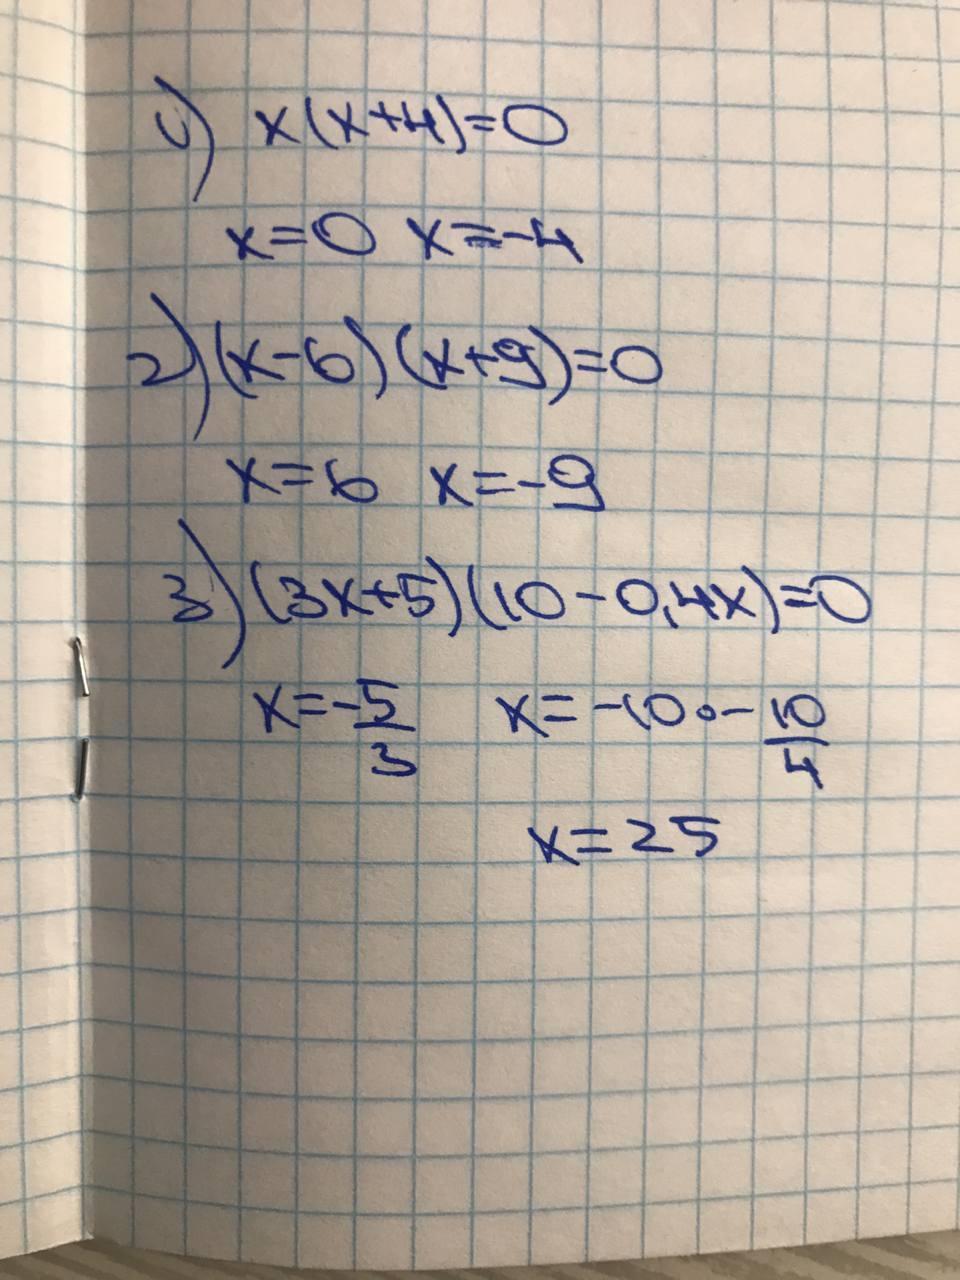 1) x(x+4)=0
x=0 x=-4
2) (x-6)(x+9)=0
x=6 x=-9
3) (3x+5)(10-0,4x)=0
x=-5/3 x=-10∘-10/4
x=25